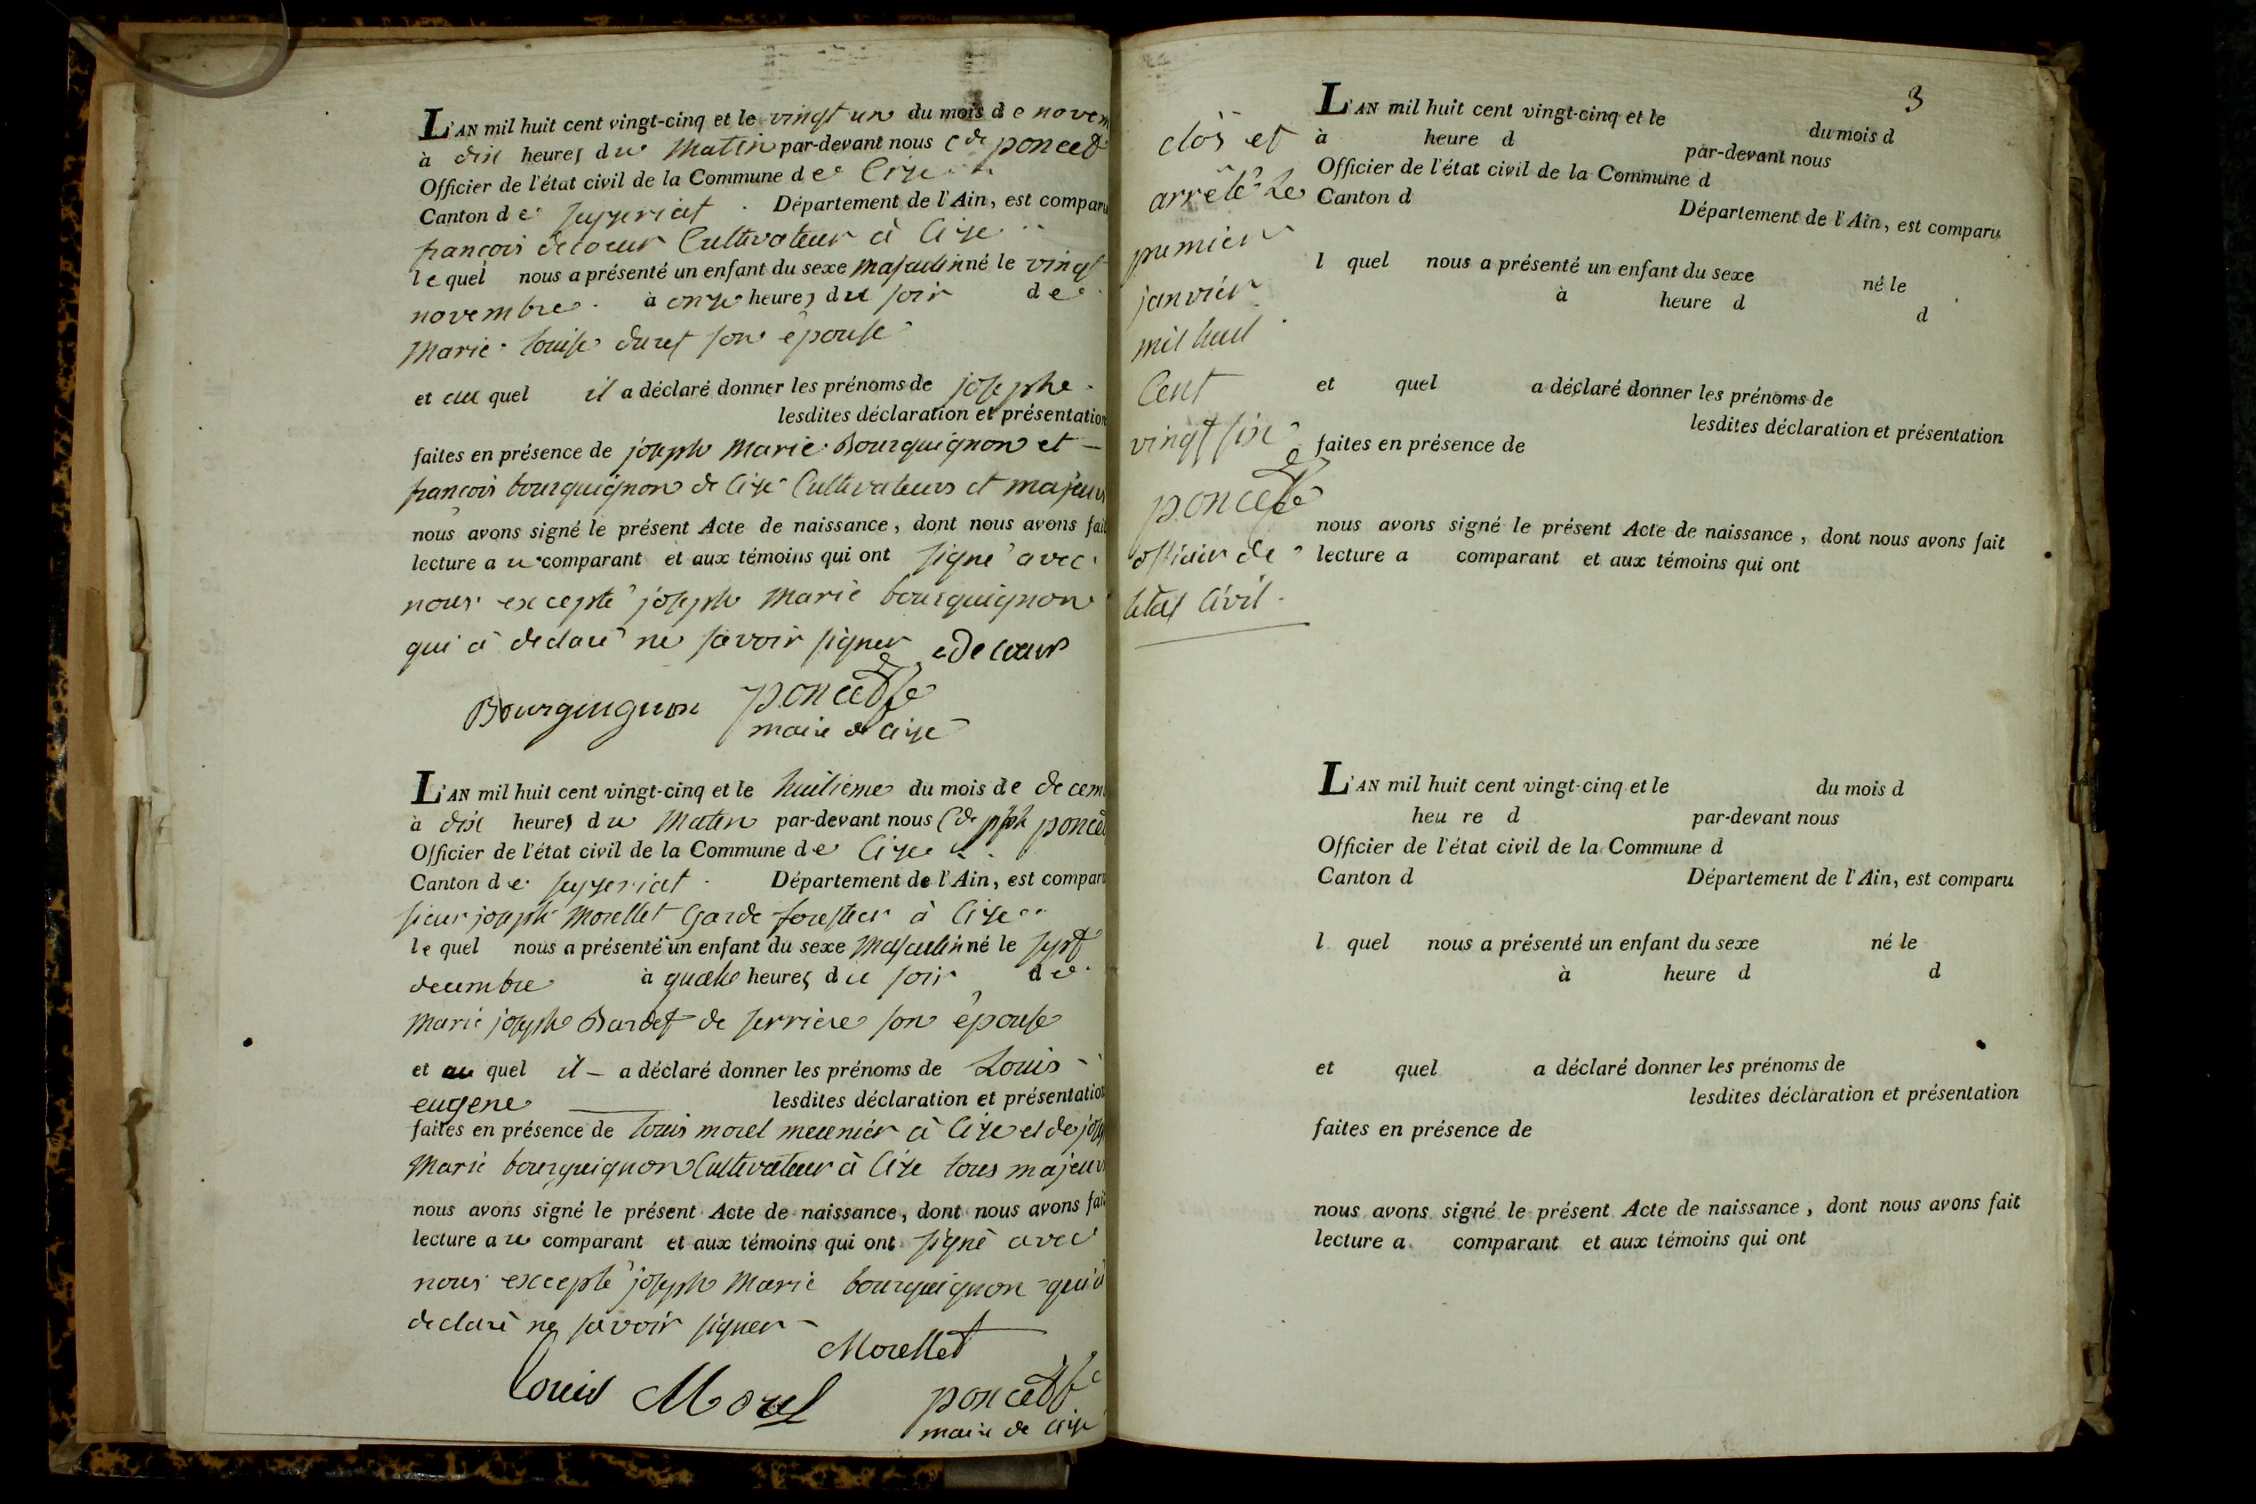 L'AN mil huit cent vingt-cinq et le vingt un du mois de novem
à dix heures du matin par-devant nous Cde poncet
Officier de l'état civil de la Commune de Cize
Canton de Seyzeriat. Département de l'Ain, est comparu
françois decoeur Cultivateur à Cize
lequel nous a présenté un enfant du sexe masculin né le vingt
novembre à onze heures du soir de
Marie louise duret son épouse
et au quel il a déclaré donner les prénoms de josephe
lesdites déclaration et présentation
faites en présence de joseph Marie Bourguignon et
françois bourguignon de Cize Cultivateurs et majeurs
nous avons signé le présent Acte de naissance, dont nous avons fait
lecture au comparant et aux témoins qui ont signé avec
nous excepté joseph Marie bourguignon
qui à declaré ne savoir signer Decoeur
Bourguignon poncet
maire de Cize
L'AN mil huit cent vingt-cinq et le huitieme du mois de decem
à dix heures du Matin par-devant nous Cde jph poncet
Officier de l'état civil de la Commune de Cize
Canton de Seyzeriat. Département de l'Ain, est comparu
sieur joseph Morellet Garde forestier à Cize
lequel nous a présenté un enfant du sexe Masculin né le sept
decembre à quatre heures du soir de
Marie joseph Bardet de serriere son épouse
et au quel il a déclaré donner les prénoms de Louis
eugene lesdites déclaration et présentation
faites en présence de louis morel meunier à Cize et de josep
Marie bourguignon Cultivateur à Cize tous majeurs
nous avons signé le présent Acte de naissance, dont nous avons fait
lecture au comparant et aux témoins qui ont signé avec
nous excepté joseph Marie bourguignon qui à
declaré ne savoir signer
Morellet
Louis Morel poncet
maire de Cize
clos et
arrêté le
premier
janvier
mil huit
Cent
vingt six
poncet
officier de
letat Civil.
3
L'AN mil huit cent vingt-cinq et le du mois d
à heure d par-devant nous
Officier de l'état civil de la Commune d
Canton d Département de l'Ain, est comparu
l quel nous a présenté un enfant du sexe né le
à heure d d
et quel a déclaré donner les prénoms de
lesdites déclaration et présentation
faites en présence de
nous avons signé le présent Acte de naissance, dont nous avons fait
lecture a comparant et aux témoins qui ont
L'AN mil huit cent vingt-cinq et le du mois d
heu re d par-devant nous
Officier de l'état civil de la Commune d
Canton d Département de l'Ain, est comparu
l quel nous a présenté un enfant du sexe né le
à heure d d
et quel a déclaré donner les prénoms de
lesdites déclaration et présentation
faites en présence de
nous avons signé le présent Acte de naissance, dont nous avons fait
lecture a comparant et aux témoins qui ont